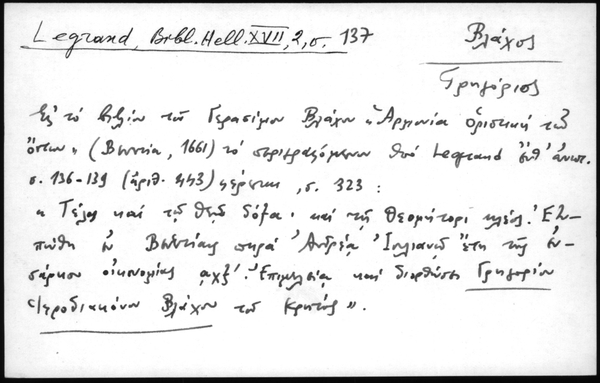 Legrand, Bibl. Hell. XVII, 2, σ. 137
Βλάχος
Γρηγόριος
Εἰς τὸ βιβλίον τοῦ Γερασίμου Βλάχου «Ἁρμονία ὁριστικὴ τῶν
ὄντων» (Βενετία, 1661) τὸ περιγραφόμενον ὑπὸ Legrand ἔνθ' ἀνωτ.
σ. 136-139 (ἀριθ. 443) φέρεται, σ. 323:
«Τέλος καὶ τῷ Θεῷ δόξα· καὶ τῇ Θεομήτορι κλέος. Ἐτυ-
πώθη ἐν Βενετίαις παρὰ Ἀνδρέᾳ Ἰουλιανῷ ἔτη τῆς ἐν-
σάρκου οἰκονομίας αχξ΄. Ἐπιμελείᾳ καὶ διορθώσει Γρηγορίου
Ἱεροδιακόνου Βλάχου τοῦ Κρητός».